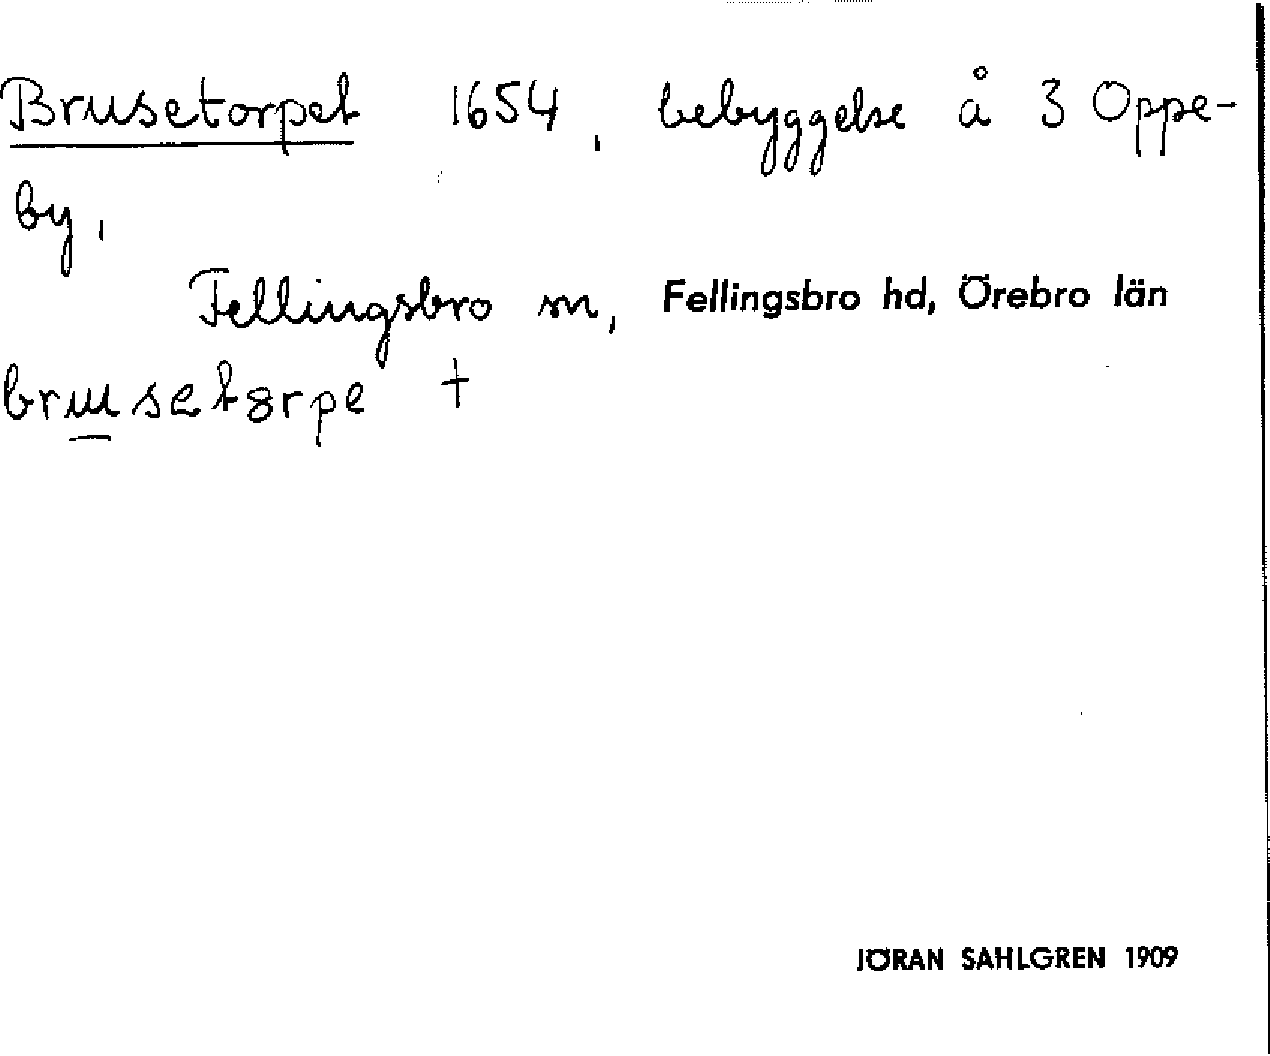 Brusetorpet 1654, bebyggelse å 3 Oppe-
by,
Fellingsbro sn, Fellingsbro hd, Örebro län
brusetȣrpe +
JÖRAN SAHLGREN 1909